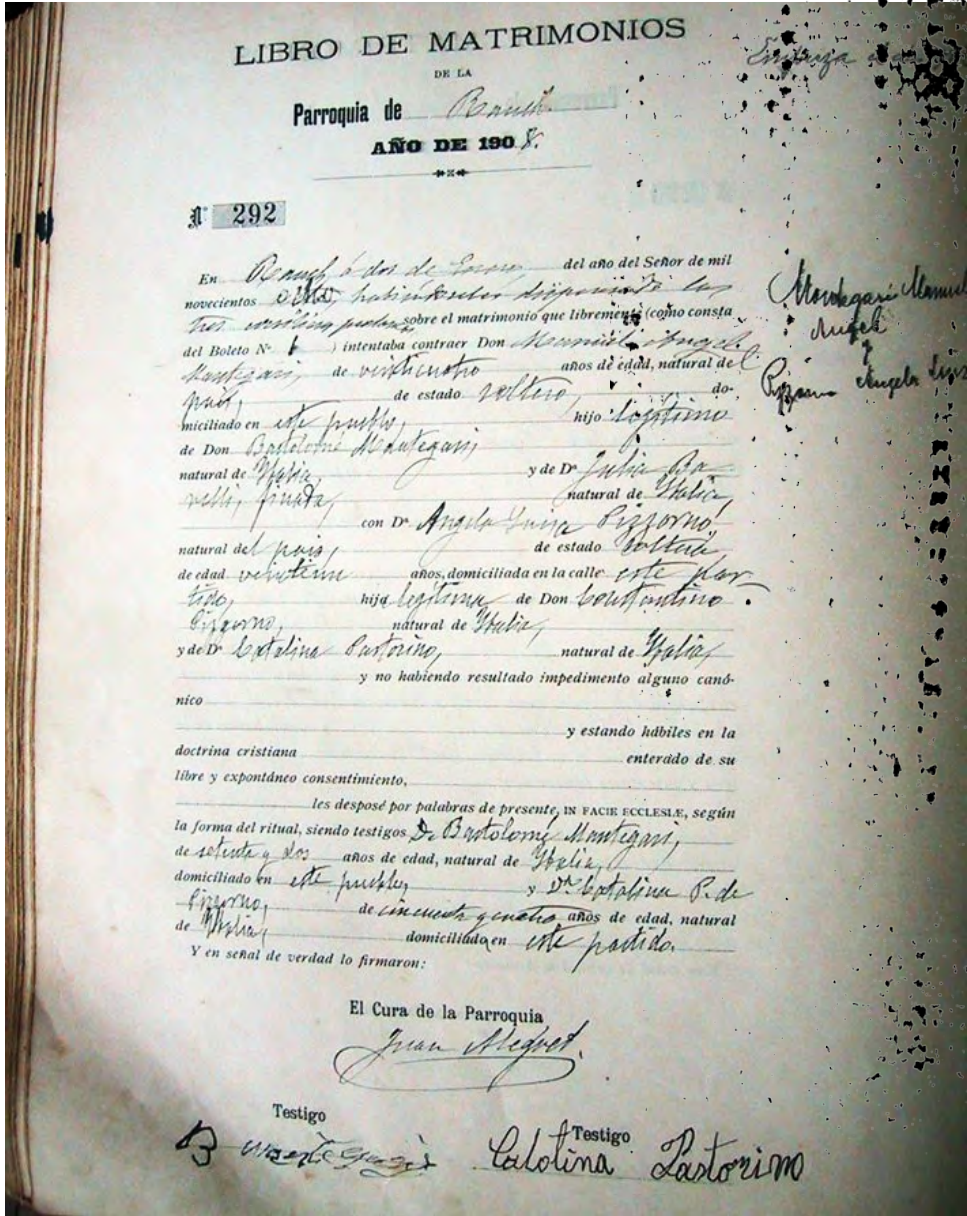 LIBRO DE MATRIMONIOS
DE LA
Parroquia de Rauch
AÑO DE 1908.
Nº 292
En Rauch á dos de Enero, del año del Señor de mil
novecientos ocho, habiéndoseles dispensado las
tres sobre el matrimonio que libremente (como consta
del Boleto Nº ) intentaba contraer Don Manuel Angel
Mantegari, de veinticuatro años de edad, natural del
país, de estado soltero, do-
miciliado en este pueblo, hijo legítimo
de Don Bartolomé Mantegari,
natural de Italia, y de Dª Julia Ba-
relli, finada, natural de Italia,
con Dª Angela Luisa Pizzorno
natural del país, de estado soltera,
de edad veintiun años, domiciliada en la calle este par-
tido, hija legítima de Don Constantino
Pizzorno, natural de Italia,
y de Dª Catalina Pastorino, natural de Italia,
y no habiendo resultado impedimento alguno canó-
nico
y estando hábiles en la
doctrina cristiana enterado de su
libre y expontáneo consentimiento,
les desposé por palabras de presente, IN FACIE ECCLESIÆ, según
la forma del ritual, siendo testigos D. Bartolomé Mantegari,
de setenta y dos años de edad, natural de Italia,
domiciliado en este pueblo, y Dª Catalina P. de
Pizzorno, de cincuenta y cuatro años de edad, natural
de Italia, domiciliada en este partido.
Y en señal de verdad lo firmaron:
El Cura de la Parroquia
Juan
Testigo
Testigo
B
Catalina Pastorino
Mantegari Manuel
Angel
y
Pizzorno Angela Luisa